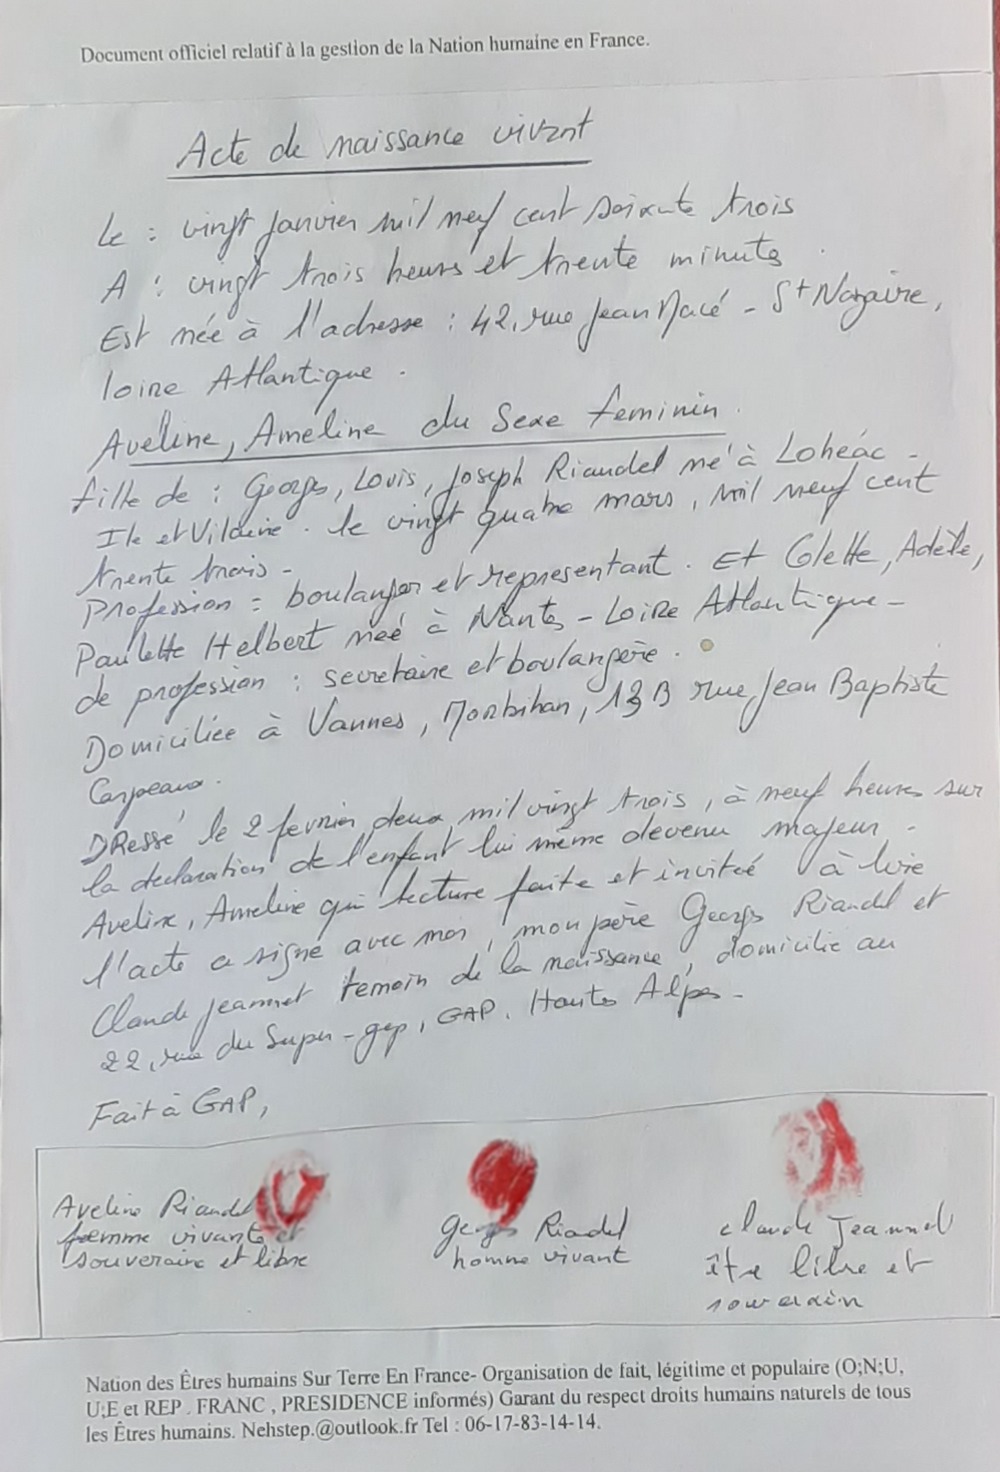 Document officiel relatif à la gestion de la Nation humaine en France.
Acte de naissance vivant
Le : vingt Janvier mil neuf cent soixante trois
A : vingt trois heures et trente minutes
Est née à l'adresse : 42, rue Jean Macé - St Nazaire,
loire Atlantique.
Aveline, Ameline du Sexe féminin.
fille de : Georges, Louis, Joseph Riaudel né à Lohéac -
Ile et Vilaine. le vingt quatre mars, mil neuf cent
trente trois -
Profession = boulanger et représentant. Et Colette, Adèle,
Paulette Helbert née à Nantes - Loire Atlantique -
de profession : secrétaire et boulangère.
Domiciliée à Vannes, Morbihan, 13 B rue Jean Baptiste
Carpeaux.
DRessé le 2 février deux mil vingt trois, à neuf heures sur
la déclaration de l'enfant lui même devenu majeur -
Aveline, Ameline qui lecture faite et invitée à lire
l'acte a signé avec moi, mon père Georges Riaudel et
Claude Jeannet temoin de la naissance, domicilié au
22, rue du Super-gap, GAP. Hautes Alpes -
Fait à GAP,
Aveline Riaudel
femme vivante et
souveraine et libre
Georges Riaudel
homme vivant
claude Jeannet
être libre et
souverain
Nation des Êtres humains Sur Terre En France- Organisation de fait, légitime et populaire (O;N;U,
U;E et REP . FRANC , PRESIDENCE informés) Garant du respect droits humains naturels de tous
les Êtres humains. Nehstep.@outlook.fr Tel : 06-17-83-14-14.